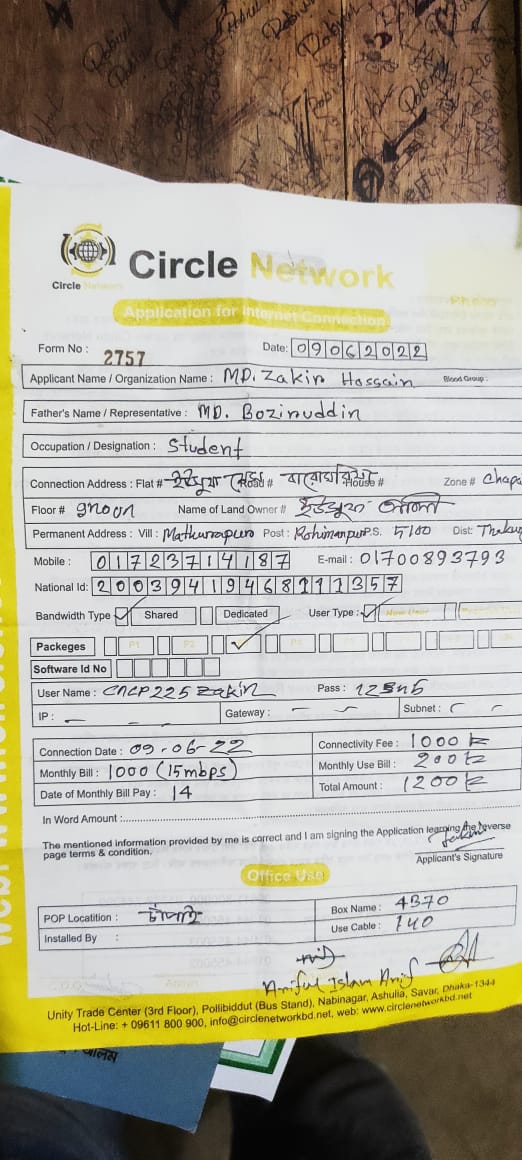 Circle Network
Circle Network
Application for Internet Connection
Photo
Form No : 2757
Date: 09062022
Applicant Name / Organization Name : MD. Zakir Hossain Blood Group :
Father's Name / Representative : MD. Boziruddin
Occupation / Designation : Student
Connection Address : Flat # Road # House # Zone # Chapa
Floor # Name of Land Owner # ইউসুফ আলী
Permanent Address : Vill : Mathurapur Post : Rohimanpur P.S. 5100 Dist: Thakur
Mobile : 01723714187 E-mail : 01700893793
National Id: 20039419468111357
Bandwidth Type Shared Dedicated User Type : New User
Packeges P1 P2 P4
Software Id No
User Name : CNCP225 Zakir Pass : 12345
IP : — — Gateway : — — Subnet :
Connection Date : 09-06-22 Connectivity Fee : 1000 tk
Monthly Bill : 1000 (15mbps) Monthly Use Bill : 200tk
Date of Monthly Bill Pay : 14 Total Amount : 1200 tk
In Word Amount :
The mentioned information provided by me is correct and I am signing the Application learning the Reverse
page terms & condition.
Zakir
Applicant's Signature
Office Use
POP Locatition : Box Name : 4370
Installed By : Use Cable : 140
Ariful Islam Arif
Unity Trade Center (3rd Floor), Pollibiddut (Bus Stand), Nabinagar, Ashulia, Savar, Dhaka-1344
Hot-Line: + 09611 800 900, info@circlenetworkbd.net, web: www.circlenetworkbd.net